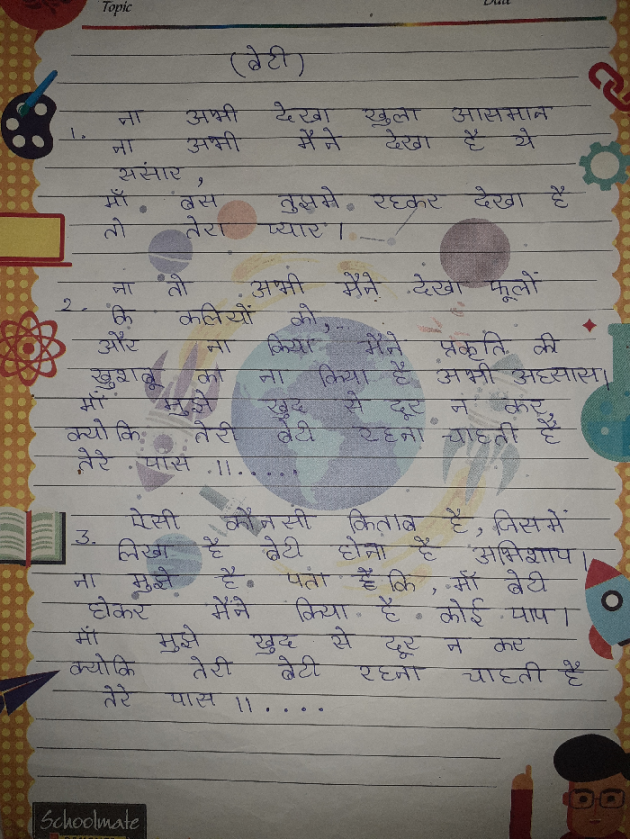 Topic
Date
(बेटी)
1. ना अभी देखा खुला आसमान
ना अभी मैंने देखा है ये
संसार,
माँ बस तुझमे रहकर देखा है
तो तेरा प्यार।
2. ना तो अभी मैंने देखा फूलों
कि कलियों को,
और ना किया मैंने प्रकृति की
खुशबू का ना किया है अभी अहसास।
माँ मुझे खुद से दूर न कर,
क्योकि तेरी बेटी रहना चाहती है
तेरे पास ।।.....
3. ऐसी कौनसी किताब है, जिसमें
लिखा है बेटी होना है अभिशाप।
ना मुझे है पता है कि, माँ बेटी
होकर मैंने किया है कोई पाप।
माँ मुझे खुद से दूर न कर
क्योकि तेरी बेटी रहना चाहती है
तेरे पास ।।....
Schoolmate